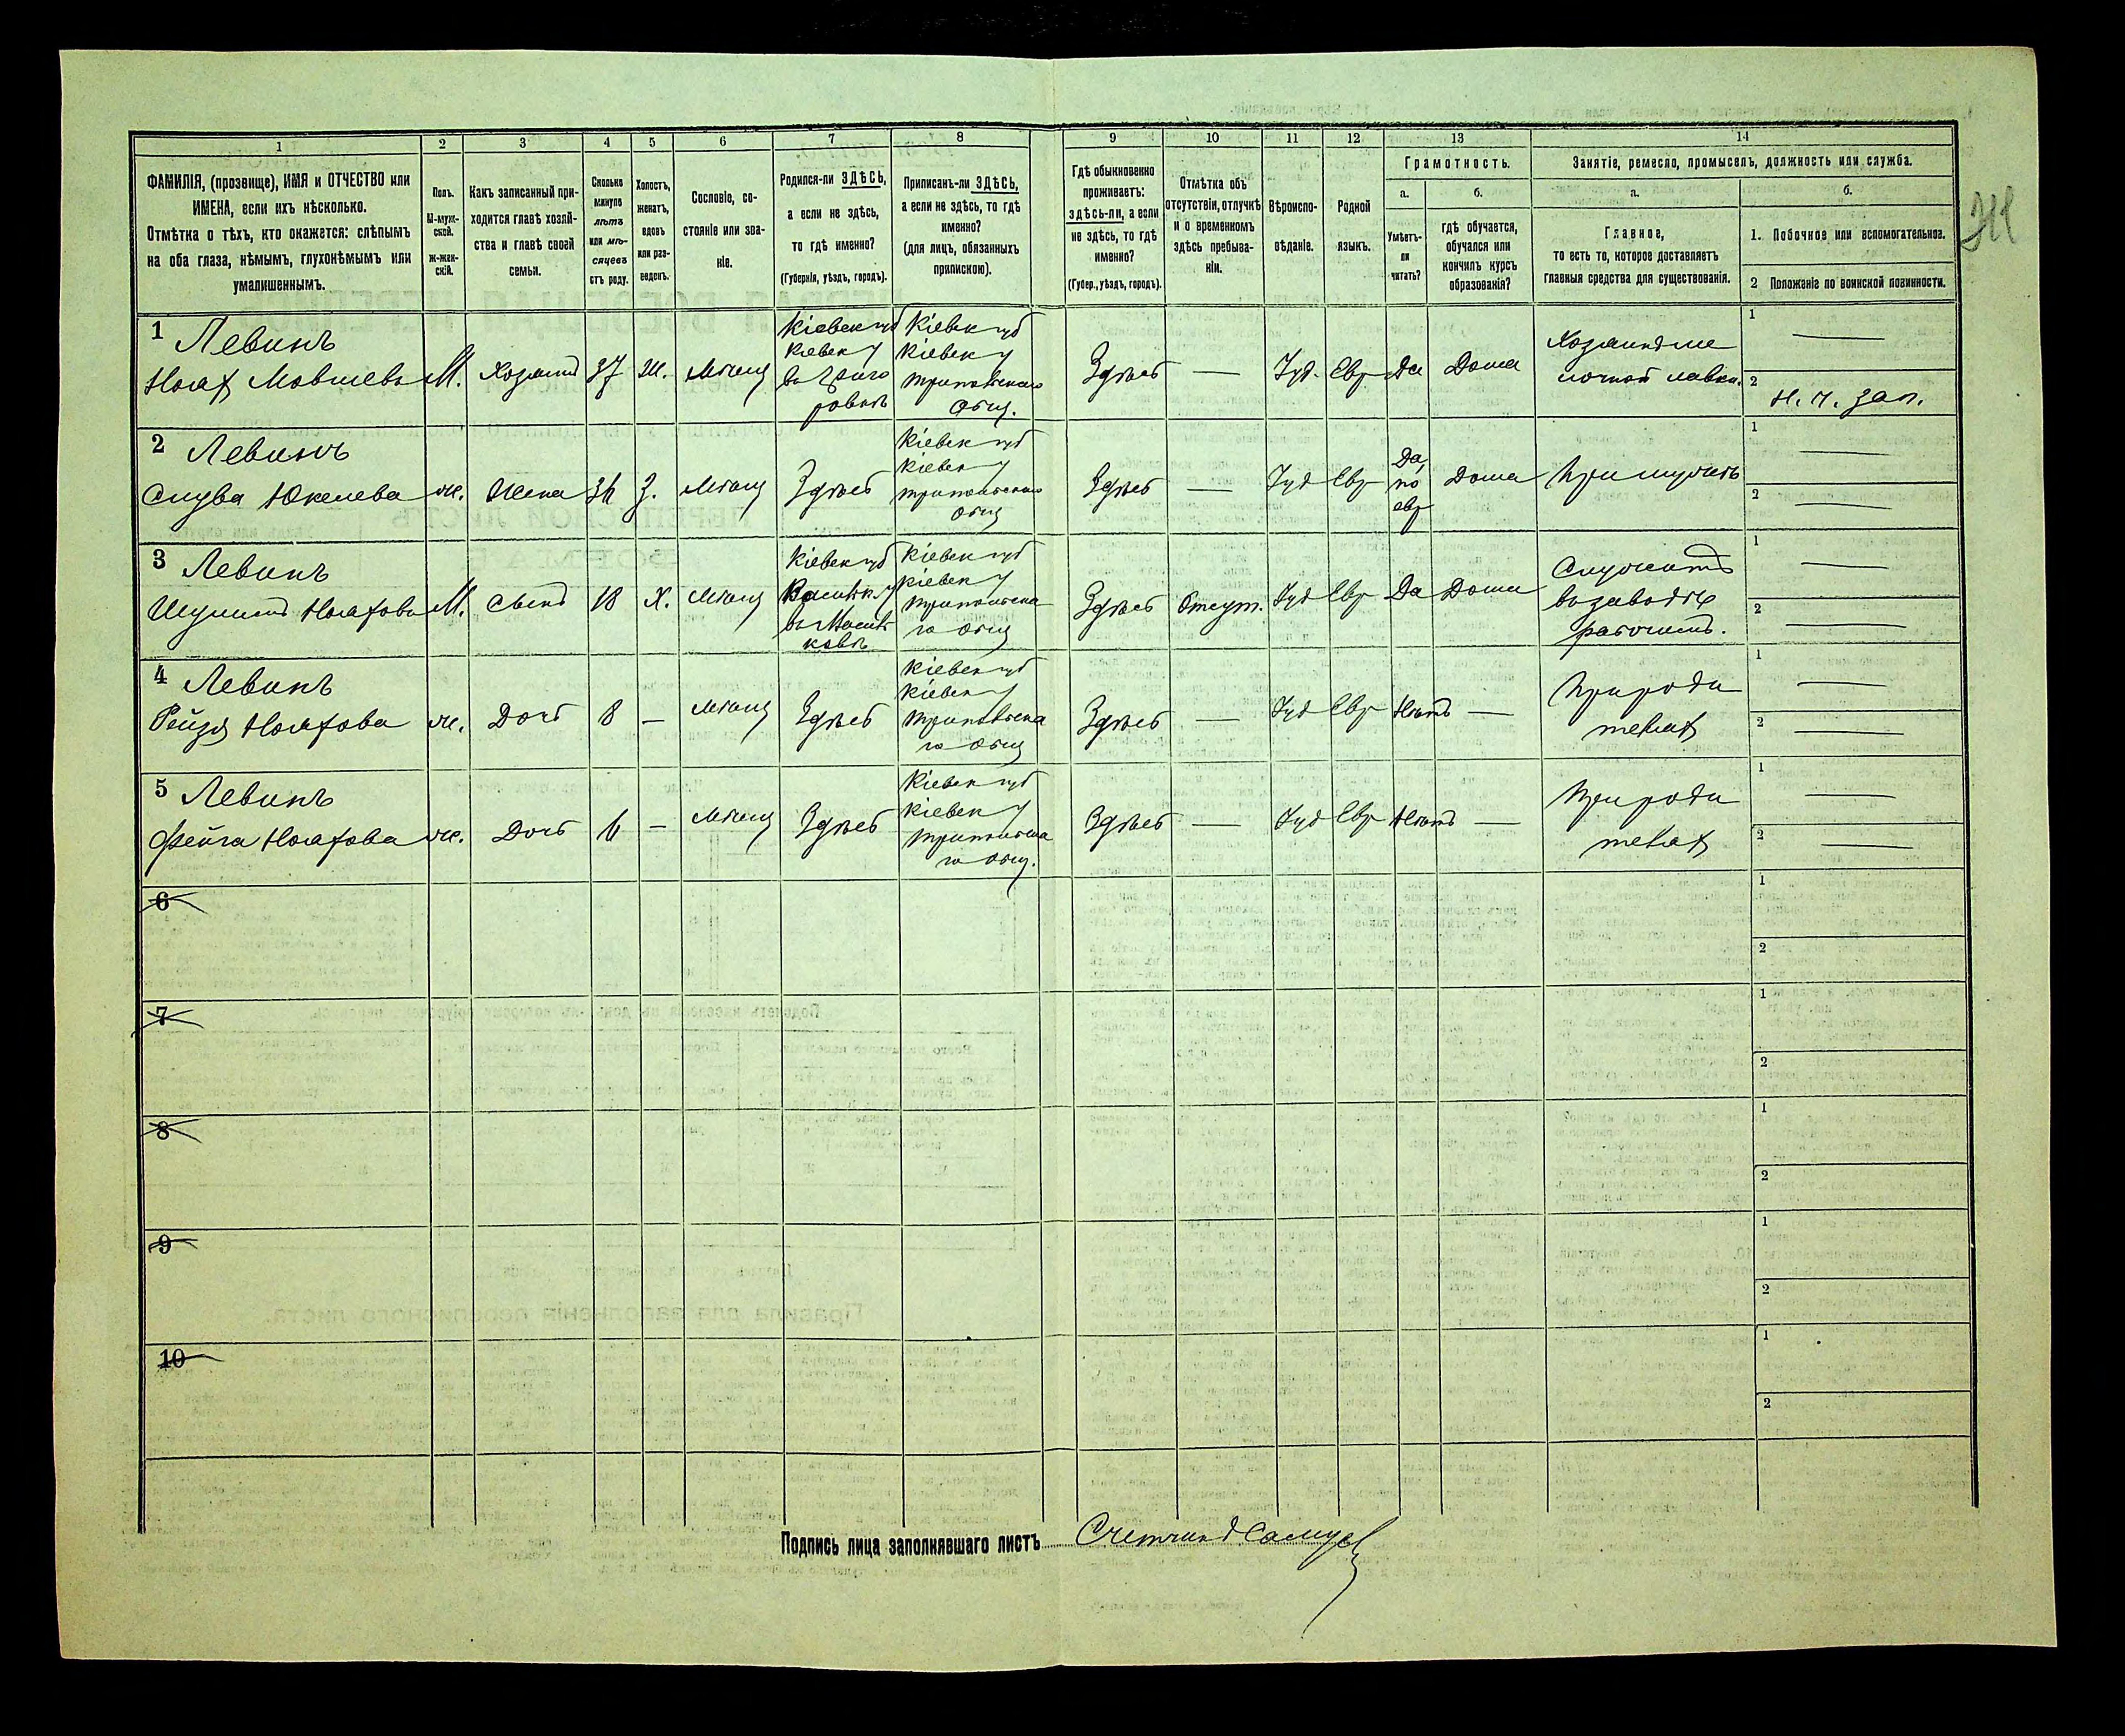 1
2
3
4
5
6
7
8
9
10
11
12
13
14
ФАМИЛІЯ, (прозвище), ИМЯ и ОТЧЕСТВО или
ИМЕНА, если ихъ нѣсколько.
Отмѣтка о тѣхъ, кто окажется: слѣпымъ
на оба глаза, нѣмымъ, глухонѣмымъ или
умалишеннымъ.
Полъ.
М-муж-
ской.
Ж-жен-
скій.
Какъ записанный при-
ходится главѣ хозяй-
ства и главѣ своей
семьи.
Сколько
минуло
лѣтъ
или мѣ-
сяцевъ
отъ роду.
Холостъ,
женатъ,
вдовъ
или раз-
веденъ.
Сословіе, со-
стояніе или зва-
ніе.
Родился-ли ЗДѢСЬ,
а если не здѣсь,
то гдѣ именно?
(Губернія, уѣздъ, городъ).
Приписанъ-ли ЗДѢСЬ,
а если не здѣсь, то гдѣ
именно?
(для лицъ, обязанныхъ
припискою).
Гдѣ обыкновенно
проживаетъ:
здѣсь-ли, а если
не здѣсь, то гдѣ
именно?
(Губер., уѣздъ, городъ).
Отмѣтка объ
отсутствіи, отлучкѣ
и о временномъ
здѣсь пребыва-
ніи.
Вѣроиспо-
вѣданіе.
Родной
языкъ.
Грамотность.
а.
Умѣетъ-
ли
читать?
б.
гдѣ обучается,
обучался или
кончилъ курсъ
образованія?
Занятіе, ремесло, промыселъ, должность или служба.
а.
Главное,
то есть то, которое доставляетъ
главныя средства для существованія.
б.
1. Побочное или вспомогательное.
2 Положеніе по воинской повинности.
1 Левинъ
Ноах Мовшевъ М. Хозяинъ 37 Ж. Мѣщ Здѣсь — Іуд. Евр Да Дома
Кіевск губ
Кіевск у
Кіевск губ
Кіевск у
Общ.
1 —
2 Н. ч. зап.
2 Левинъ
Слува Юкелева ж. Жена З. Мѣщ Здѣсь
Кіевск губ
Кіевск у
Общ
Здѣсь — Іуд Евр Да, по евр Дома При мужѣ
1 —
2 —
3 Левинъ
М. Сынъ 18 Х. Мѣщ
Кіевск губ
Кіевск губ
Кіевск у
го общ
Здѣсь Отсут. Іуд Евр Да Дома
Служитъ
въ заводѣ
рабочимъ.
1 —
2 —
4 Левинъ
Рейзя Ноахова ж. Дочь 8 — Мѣщ Здѣсь
Кіевск губ
Кіевск у
го общ
Здѣсь — Іуд Евр Нѣтъ —
При роди
телях
1 —
2 —
5 Левинъ
Фейга Ноахова ж. Дочь 6 — Мѣщ Здѣсь
Кіевск губ
Кіевск у
го общ.
Здѣсь — Іуд Евр Нѣтъ —
При роди
телях
1 —
2 —
6
1
2
7
1
2
8
1
2
9
1
2
10
1
2
Подпись лица заполнявшаго листъ Счетчикъ